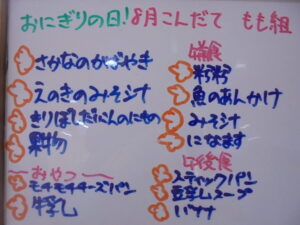 おにぎりの日！8月こんだて もも組
さかなのかばやき
えのきのみそ汁
きりぼしだいこんのにもの
果物
おやつ
モチモチチーズパン
牛乳
午前食
魚のあんかけ
みそ汁
になます
午後食
スティックパン
豆乳スープ
バナナ